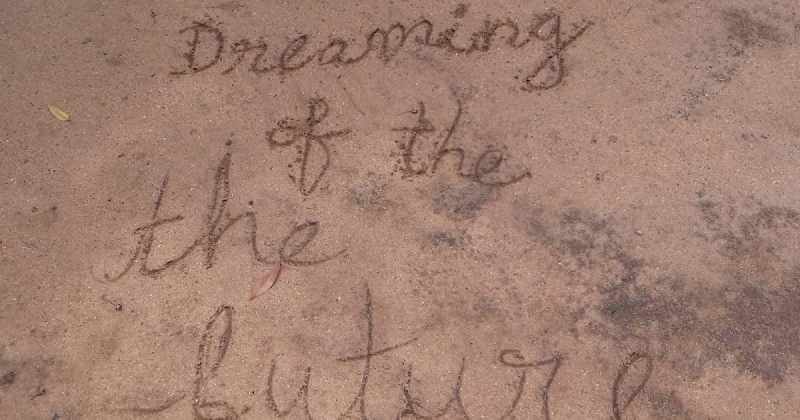 Dreaming
of the
the
future